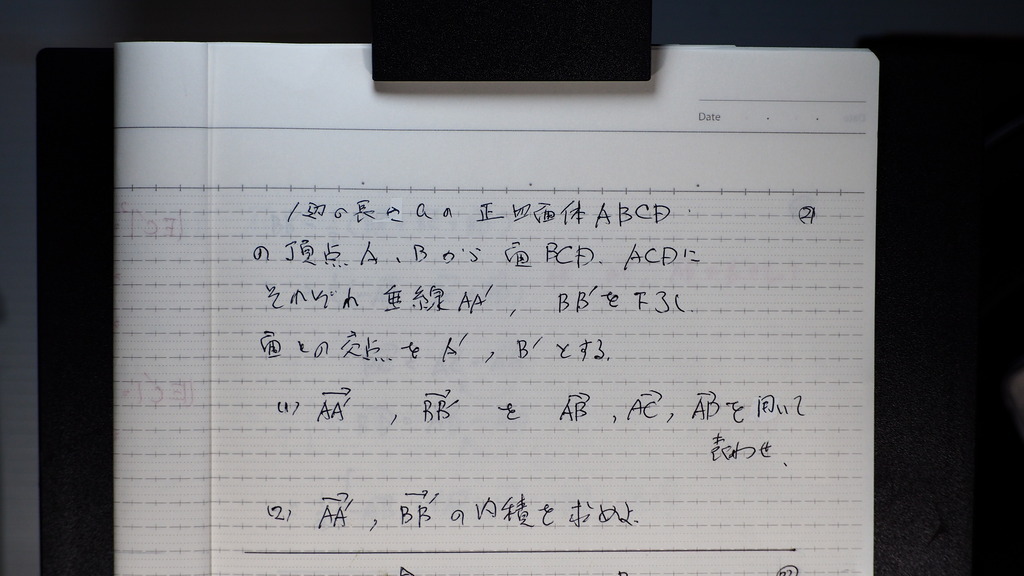 Date
1辺の長さaの正四面体ABCD
の頂点A、Bから面BCD、ACDに
それぞれ垂線AA′, BB′を下ろし
面との交点をA′, B′とする。
(1) AA′, BB′を AB, AC, ADを用いて
表わせ、
(2) AA′, BB′の内積を求めよ。